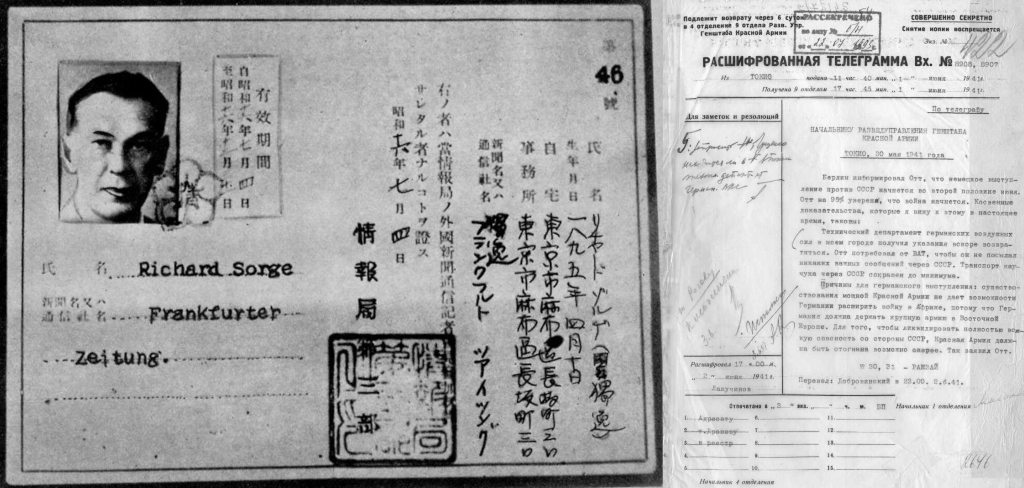 第
46
號
有効期間
自昭和十六年七月四日
氏名
Richard Sorge
新聞名又ハ
通信社名
Frankfurter
Zeitung.
氏名
リヒャルド ゾルゲ
生年月日
一八九五年
自宅
東京市麻布區長坂町
事務所
東京市麻布區長坂町
新聞名又ハ
通信社名
フランクフルト ツアイツング
右ノ者ハ當情報局ノ外國新聞通信記者
サレタル者ナルコトヲ證ス
昭和十六年七月四日
情報局第三部
Подлежит возврату через 6 суток
в 4 отделение 9 отдела Разв. Упр.
Генштаба Красной Армии
РАССЕКРЕЧЕНО
по акту №
СОВЕРШЕННО СЕКРЕТНО
Снятие копии воспрещается
Экз. №
РАСШИФРОВАННАЯ ТЕЛЕГРАММА Вх. № 8908, 8907
Из ТОКИО подана 11 час. 40 мин. „ 1 “ июня 1941г.
Получена 9 отделом 17 час. 45 мин. „ 1 “ июня 1941г.
По телеграфу
Для заметок и резолюций
НАЧАЛЬНИКУ РАЗВЕДУПРАВЛЕНИЯ ГЕНШТАБА
КРАСНОЙ АРМИИ
ТОКИО, 30 мая 1941 года
Берлин информировал Отт, что немецкое выступ-
ление против СССР начнется во второй половине июня.
Отт на 95% уверен, что война начнется. Косвенные
доказательства, которые я вижу к этому в настоящее
время, таковы:
Технический департамент германских воздушных
сил в моем городе получил указание вскоре возвра-
титься. Отт потребовал от ВАТ, чтобы он не посылал
никаких важных сообщений через СССР. Транспорт кау-
чука через СССР сокращен до минимума.
Причины для германского выступления: существо-
ствования мощной Красной Армии не дает возможности
Германии расширить войну в Африке, потому что Гер-
мания должна держать крупную армию в Восточной
Европе. Для того, чтобы ликвидировать полностью вся-
кую опасность со стороны СССР, Красная Армия долж-
на быть отогнана возможно скорее. Так заявил Отт.
№ 30, 31 - РАМЗАЙ
Перевел: Добровинский в 22.00. 2.6.41.
Расшифровал 17 ч. 00 м.
„ 2 “ июня 1941 г.
Отпечатано в
Начальник 1 отделения
1.
2.
3. в реестр
4.
5.
6.
7.
8.
9.
10.
11.
12.
13.
14.
15.
Начальник 4 отделения